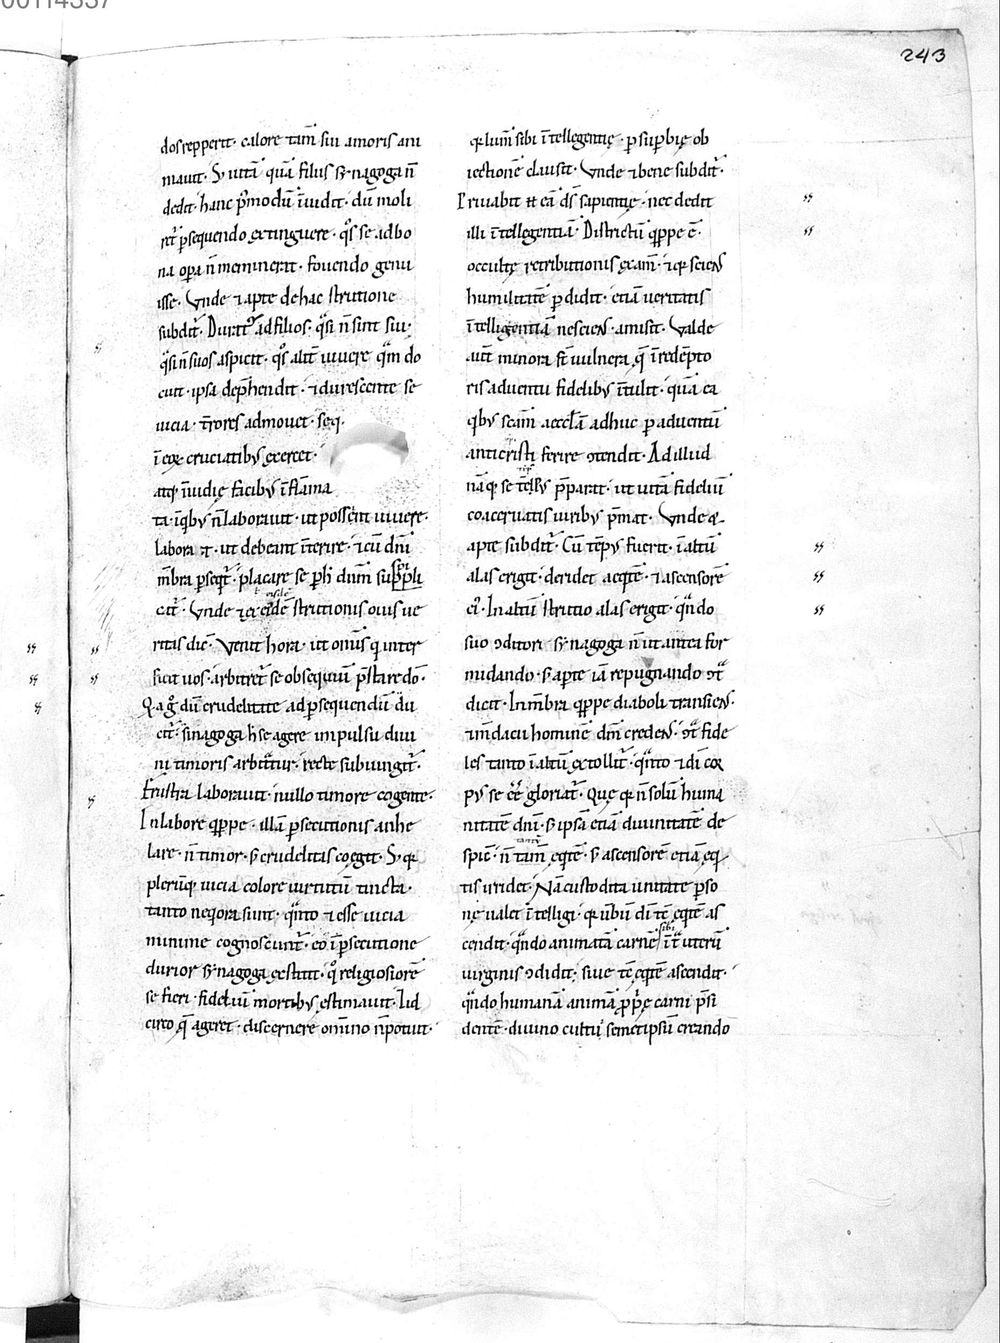 00114337
243
dos repperit· calore tam̄ sui amoris ani
mauit· Sȝ uitā quā filius synagoga n̄
dedit· hanc p̄modū īuidit· dū moli
ret᷑ ꝑsequendo extinguere· qͦs se adbo
na oꝑa n̄ meminerat· fouendo genu
isse· Vnde ⁊ apte de hac strutione
subdit᷑· Durat᷑ ad filios· qͣsi n̄ sint sui·
qͣsi n̄ suos aspicit· qͦs alit̄ uiuere qͣm do
cuit· ipsa dep̄hendit· ⁊ durescente se
uicia· t̄rores admouet· seq·
ī eoꝝ cruciatibꝰ exercet·
atqȝ īuidie facibꝰ īflāma
ta· īqͥbꝰ n̄ laborauit· ut possent uiuere·
laborat· ut debeant īterire· ⁊ cū dn̄i
m̄bra ꝑseqt᷑· placare se ꝑ h̓ dn̄m suspͥpli
cat᷑· Vnde ⁊ ex eidē strutionis ouis ue
ritas dic̄· Venit hora· ut om̄is qͥ inter
ficit uos· arbitret᷑ se obsequiū p̄stare do·
Qͥa gͦ dū crudelitate ad ꝑsequendū du
cit᷑· sinagoga h̓ se agere impulsu diui
ni timoris arbitrͣtur· recte subiungit᷑·
Frustra laborauit· nullo timore cogente·
In labore qͥppe· illā ꝑsecutionis anhe
lare· n̄ timor· sȝ crudelitas coegit· Sȝ qꝛ
plerūqȝ uicia colore uirtutū tincta·
tanto neqͥora sunt· qͣnto ⁊ esse uicia
minime cognoscunt᷑· eo ī ꝑsecutione
durior synagoga exstitit· qͦ religiosiorē
se fieri· fideliū mortibꝰ estimauit· Iid
circo qͥd ageret· discernere om̄ino n̄ potuit·
qꝛ lum̄ sibi ītellegentię· ꝑ suꝑbię ob
iectionē clausit· Vnde ⁊ bene subdit᷑·
Priuabit eā ds̄ sapientię· nec dedit
illi ītellegentiā· Districtū qͥppe ē·
occultę retributionis exam̄· ⁊ qꝛ sciens
humilitatē ꝑdidit· etiā ueritatis
ītelligentiā nesciens· amisit· Valde
aut̄ minora st̄ uulnera· quę ī redēpto
ris aduentu fidelibꝰ ītulit· quā ea
qͥbꝰ scām accl̄ā adhuc ꝑ aduentū
anticristi ferire ɔtendit· Ad illud
nāqȝ se tēpꝰ p̄parat· ut uitā fideliū
coaceruatis uiribꝰ p̄mat· Vnde ⁊
apte subdit᷑· Cū tēpꝰ fuerit· ī altū
alas erigit· deridet eqͥtē· ⁊ ascensorē
eiꝰ· In altū strutio alas erigit· qͣndo
suo ɔditori· synagoga n̄ ut antea for
midando· sȝ aperte iā repugnando ɔtͣ
dicit· In m̄bra qͥppe diaboli transiens·
⁊ m̄dacii hominē dm̄ credens· ɔtͣ fide
les tanto ī altū extollit᷑· qͣnto ⁊ di cor
pꝰ se ēē gloriat᷑· Quę qꝛ n̄ solū huma
nitatē dn̄i· sȝ ipsā etiā diuinitatē de
spic̄· n̄ tam̄ eqͥtē· sȝ ascensorē etiā eqͥ
tis irridet· Nā custodita unitate ꝑso
nę ualet ītelligi· qꝛ uerbū di tē eqͥtē as
cendit· qͣndo animatā carnē sibi ītͣ uterū
uirginis ɔdidit· siue tē eqͥtē ascendit·
qͣndo humanā animā ꝓpͥę carni p̄si
dentē· diuino cultui semetipsū creando